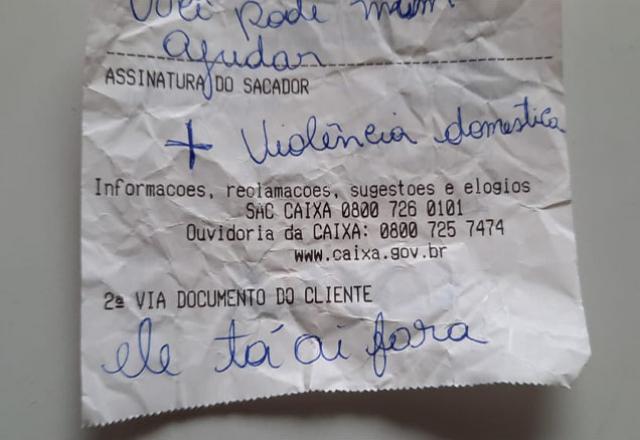 Você pode
ajudar
ASSINATURA DO SACADOR
+ Violência domestica
Informacoes, reclamacoes, sugestoes e elogios
SAC CAIXA 0800 726 0101
Ouvidoria da CAIXA: 0800 725 7474
www.caixa.gov.br
2ª VIA DOCUMENTO DO CLIENTE
ele tá ai fora